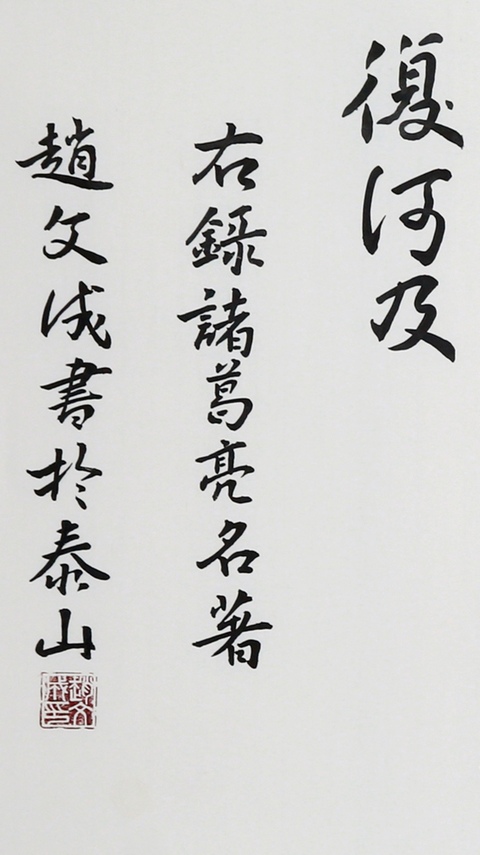 復何及
右錄諸葛亮名著
趙文成書於泰山
趙文成印